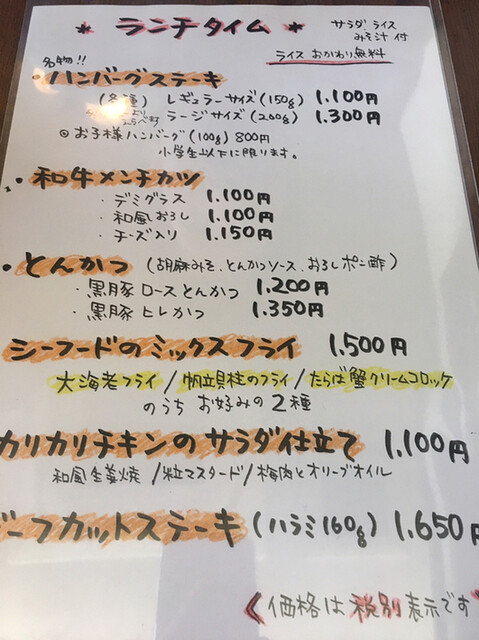 * ランチタイム *
サラダ ライス
みそ汁 付
ライス おかわり無料
名物!!
・ハンバーグステーキ
(各種) レギュラーサイズ(150g) 1.100円
ラージサイズ(200g) 1.300円
◎お子様ハンバーグ(100g) 800円
小学生以下に限ります。
・和牛メンチカツ
・デミグラス 1.100円
・和風おろし 1.100円
・チーズ入り 1.150円
・とんかつ (胡麻みそ、とんかつソース、おろしポン酢)
・黒豚 ロースとんかつ 1.200円
・黒豚 ヒレかつ 1.350円
シーフードのミックスフライ 1.500円
大海老フライ/帆立貝柱のフライ/たらば蟹クリームコロッケ
のうち お好みの2種
カリカリチキンのサラダ仕立て 1.100円
和風生姜焼/粒マスタード/梅肉とオリーブオイル
ーフカットステーキ(ハラミ160g) 1.650円
《価格は税別表示です